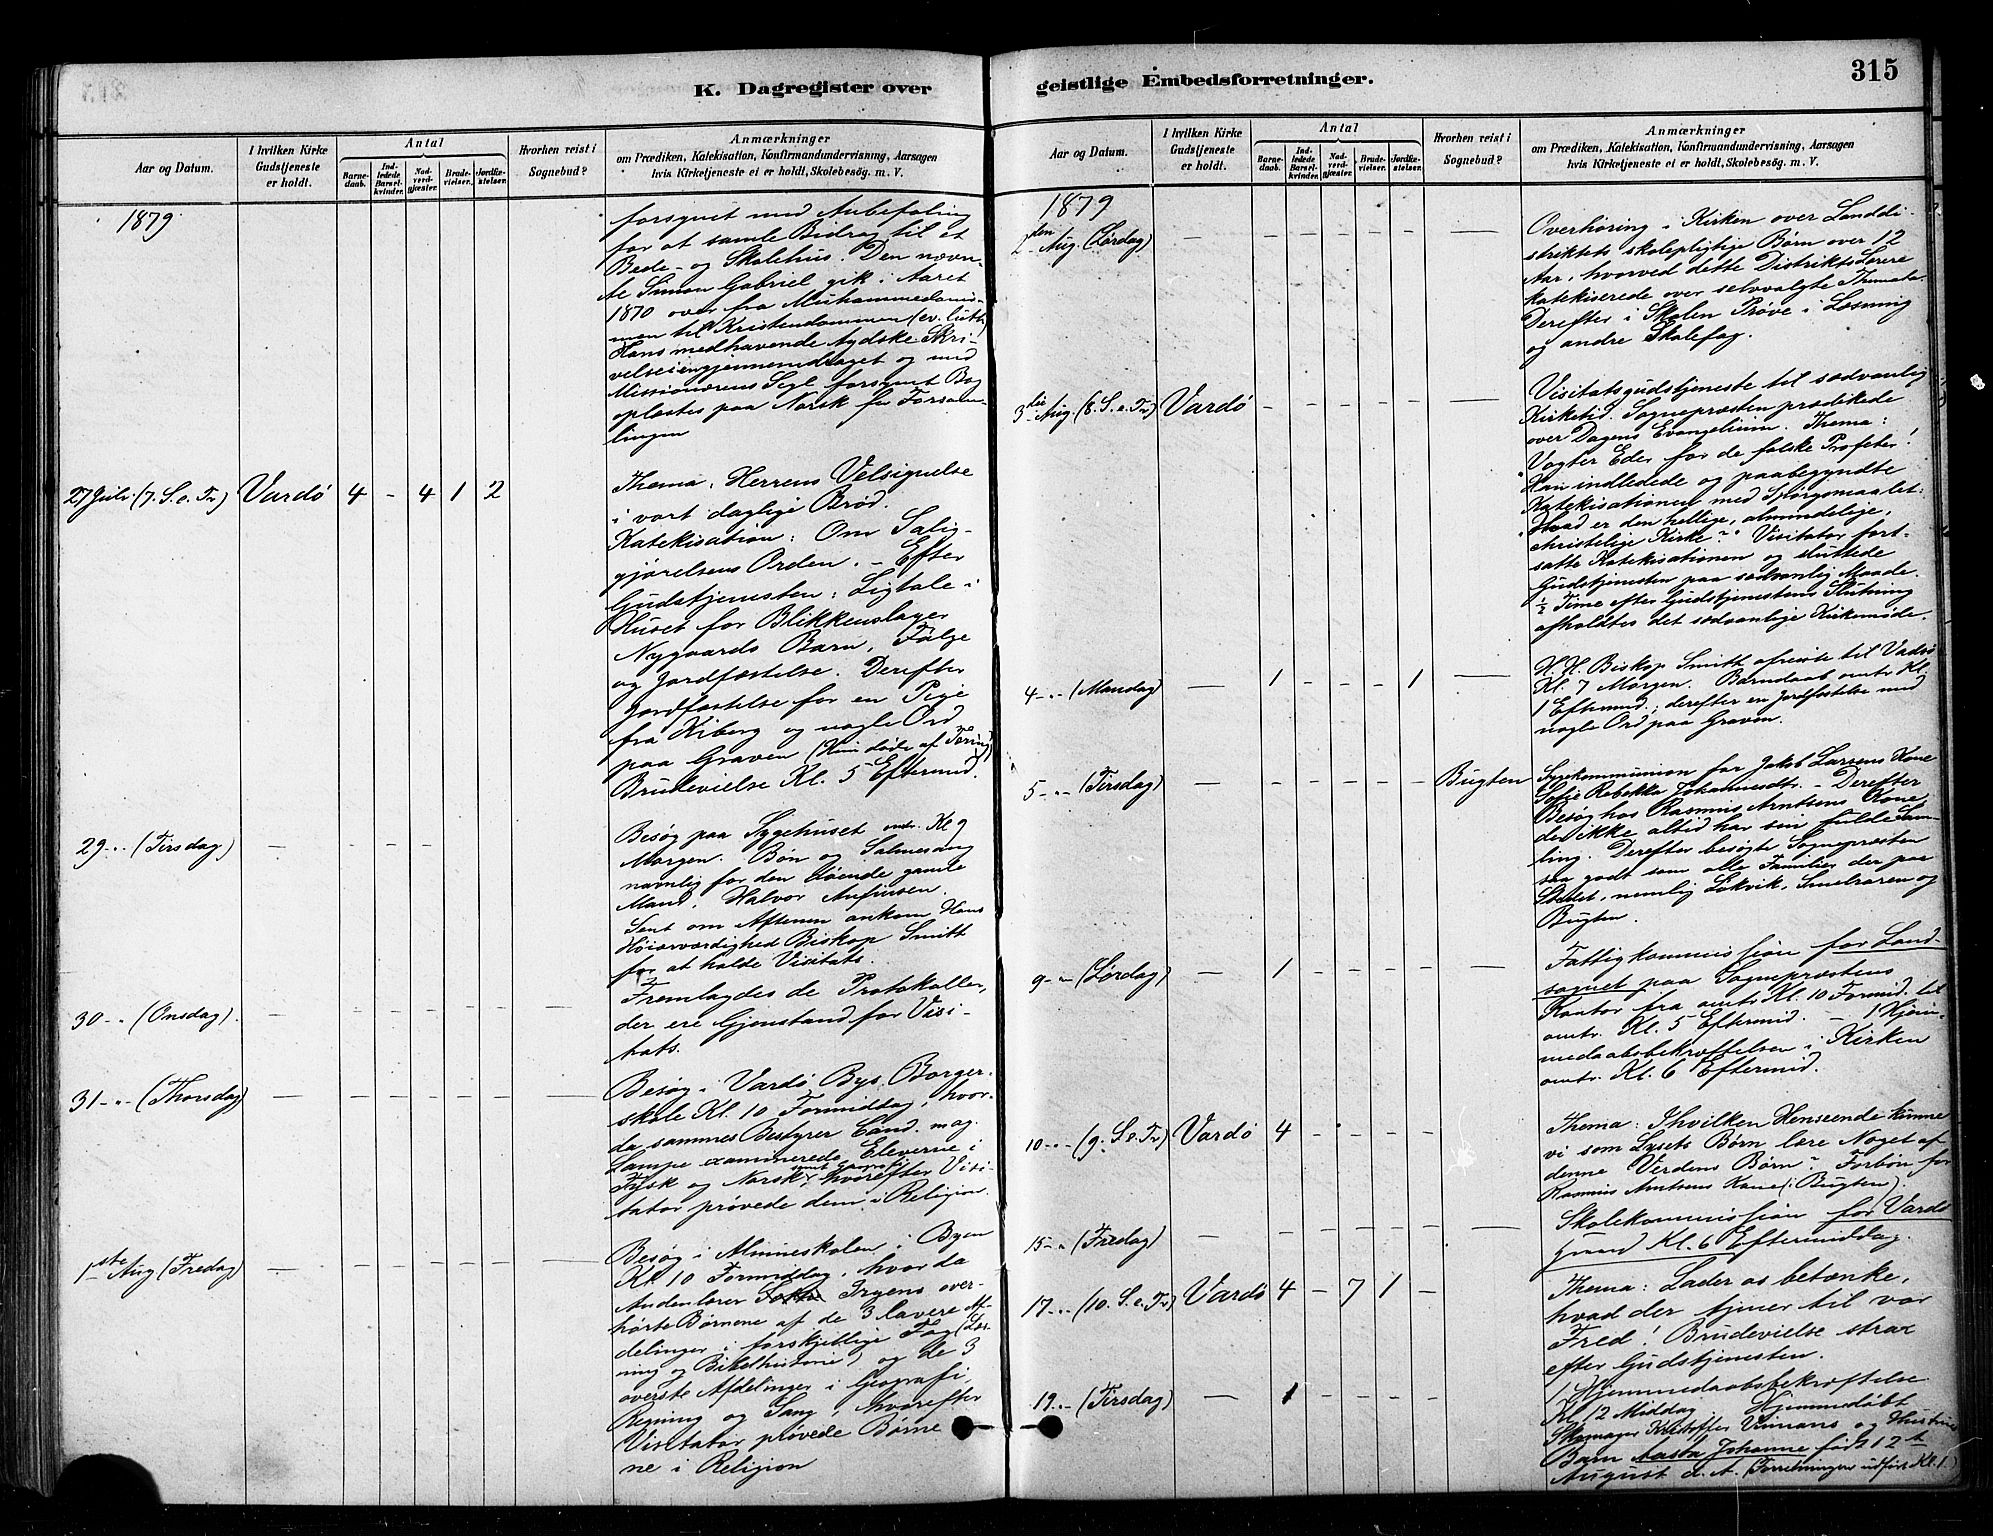 315
K. Dagregister over
Aar og Datum.
I hvilken Kirke
Gudstjeneste
er holdt.
Antal
Barne-
daab.
Ind-
ledede
Barsel-
kvinder.
Nad-
verd-
gjæster.
Brude-
vielser.
Jordfæ-
stelser.
Hvorhen reist i
Sognebud?
Anmærkninger
om Prædiken, Katekisation, Konfirmandundervisning, Aarsagen
hvis Kirketjeneste ei er holdt, Skolebesøg. m. V.
1879
forsynet med Anbefaling
for at samle Bidrag til et
Bede- og Skolehus. Den nævn-
te Simon Gabriel gik i Aaret
1870 over fra Muhammedanis-
men til Kristendommen (ev. luth.)
Hans medhavende tydske Skri-
velse igjennemdraget og med
Missionærens Segl forsynet Bog
oplæstes paa Norsk for Forsam-
lingen
27 Juli (7. S. e. Tr) Vardø 4 - 4 1 2
Thema: Herrens Velsignelse
i vort daglige Brød.
Katekisation: Om Salig-
gjørelsens Orden. - Efter
Gudstjenesten: Ligtale i
Huset for Blikkenslager
Nygaards Barn, Følge
og Jordfæstelse. Derefter
Jordfæstelse for en Pige
fra Kiberg og nogle Ord
paa Graven (Hun døde af Tæring)
Brudevielse Kl. 5 Eftermid.
29 - (Tirsdag) - - - - - -
Besøg paa Sygehuset omtr. Kl 9
Morgen. Bøn og Salmesang
navnlig for den døende gamle
Mand, Halvor Anfinsen.
Sent om Aftenen ankom Hans
Høiærværdighed Biskop Smitt
for at holde Visitats.
30 - (Onsdag). - - - - - - -
Fremlagdes de Protokoller,
der ere Gjenstand for Visi-
tats.
31 - (Thorsdag) - - - - - - -
Besøg i Vardø Bys Borger-
skole Kl. 10 Formiddag, hvor-
da sammes Bestyrer Cand. mag.
Lampe examinerede Eleverne i
Tysk og Norsk samt Geografi hvorefter Visi-
tator prøvede dem i Religion.
1ste Aug (Fredag) - - - - - - -
Besøg i Almueskolen i Byen
Kl 10 Formiddag, hvor da
Andenlærer Tryens over-
hørte Børnene af de 3 lavere Af-
delinger i forskjellige Fag (Læs-
ning og Bibelhistorie) og de 3
øverste Afdelinger i Geografi,
Regning og Sang, hvorefter
Visitator prøvede Børne
ne i Religion
geistlige Embedsforretninger.
Aar og Datum.
I hvilken Kirke
Gudstjeneste
er holdt.
Antal
Barne-
daab.
Ind-
ledede
Barsel-
kvinder.
Nad-
verd-
gjæster.
Brude-
vielser.
Jordfæ-
stelser.
Hvorhen reist i
Sognebud?
Anmærkninger
om Prædiken, Katekisation, Konfirmandundervisning, Aarsagen
hvis Kirketjeneste ei er holdt, Skolebesøg. m. V.
1879
2den Aug. (Lørdag) - - - - - - -
Overhøring i Kirken over Landdi-
striktets skolepligtige Børn over 12
Aar, hvorved dette Distrikts Lærere
katekiserede over selvvalgte Themata.
Derefter i Skolen Prøve i Læsning
og andre Skolefag.
3die Aug. (8. S. e. Tr) Vardø - - - - - -
Visitatsgudstjeneste til sædvanlig
Kirketid. Sognepræsten prædikede
over Dagens Evangelium. Thema:
Vogter Eder for de falske Profeter!
Han indledede og paabegyndte
Katekisationen med Spørgsmaalet:
"Hvad er den hellige, almindelige,
christelige Kirke?" Visitator fort-
satte Katekisationen og sluttede
Gudstjenesten paa sædvanlig Maade.
½ Time efter Gudstjenestens Slutning
afholdtes det sædvanlige Kirkemøde.
4 - (Mandag) - 1 - - - 1 -
H. H. Biskop Smitt afreiste til Vadsø
Kl. 7 Morgen. Barnedaab omtr. Kl.
1 Eftermid.; derefter en Jordfæstelse med
nogle Ord paa Graven.
5 - (Tirsdag) - - - - - - Bugten
Sygekommunion for Jakob Larsens Kone
Sofie Rebekka Johannesdtr. - Derefter
Besøg hos Rasmus Arntsens Kone
der ikke altid har sin fulde Sam-
ling. Derefter besøgte Sognepræsten
saa godt som alle Familier der paa
Stedet, nemlig Lokvik, Smelroren og
Bugten.
9 - (Lørdag) - 1 - - - - -
Fattigkommission for Land-
sognet paa Sognepræstens
Kontor fra omtr. Kl. 10 Formid. til
omtr. Kl. 5 Eftermid. - 1 Hjem-
medaabsbekræftelsen i Kirken
omtr. Kl. 6 Eftermid.
10 - (9. S. e. Tr) Vardø 4 - - - - -
Thema: I hvilken Henseende kunne
vi som Lysets Børn lære Noget af
denne Verdens Børn? Forbøn for
Rasmus Arntsens Kone (i Bugten)
15 - (Fredag) - - - - - - -
Skolekommission for Vardø
Grund Kl. 6 Eftermiddag.
17 - (10. S. e. Tr) Vardø 4 - 7 1 -
Thema: Lader os betænke,
hvad der tjener til vor
Fred! Brudevielse strax
efter Gudstjenesten.
19. - (Tirsdag) - 1 - - - - -
1 Hjemmedaabsbekræftelse
Kl. 12 Middag. Hjemmedøbt
Skomager Kristoffer Vimans og Hustrus
Barn Aasta Johanne født 12te
August d. A. (Forretningen udført Kl. 1)